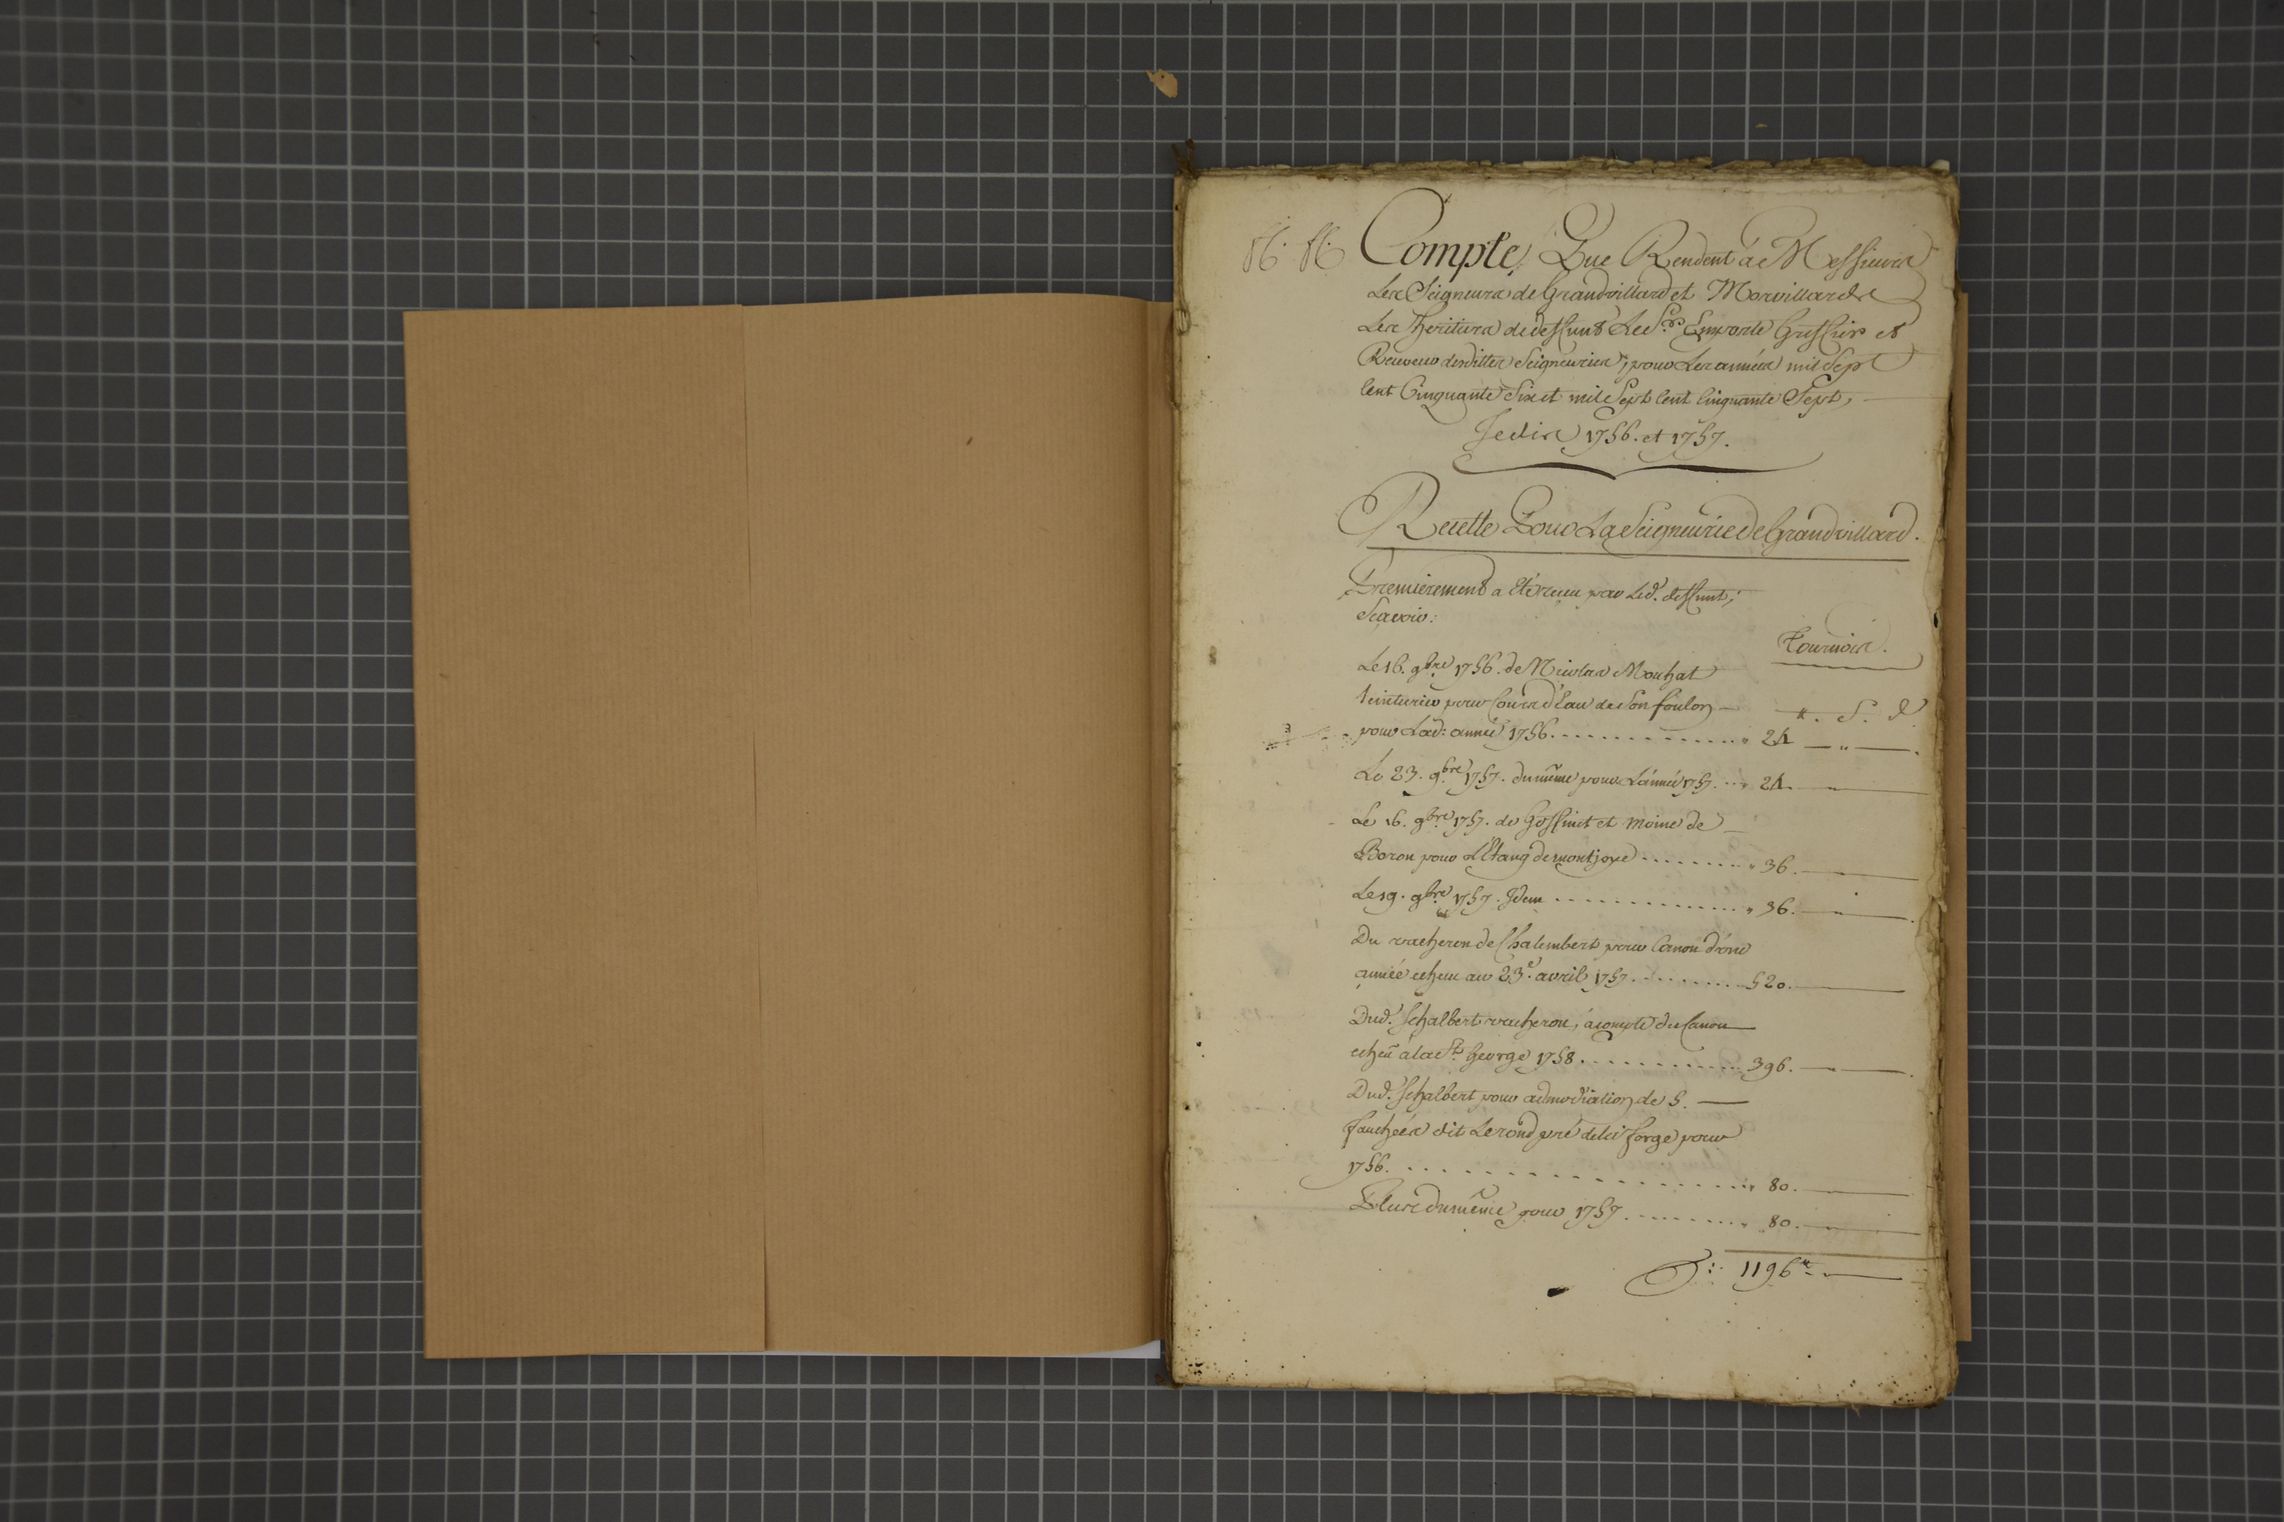 56. 57. Compte Que Rendent à Messieurs
Les Seigneurs de Grandvillard et Morvillards
Les heritiers de deffunt Le Sr. Greffier et
Receveur desdittes Seigneuries, pour Les années mil Sept
Cent Cinquante Six et mil Sept Cent Cinquante Sept,
Jedis 1756. et 1757.
Recette Pour La Seigneurie de Grandvillard.
Premierement a Eté receu par Led. deffunt;
Scavoir:
Tournois.
Le 16. 9bre 1756. de Nicolas Mouhat
teinturier pour Cours d'Eau de Son foulon
₶. S. d.
pour Lad: année 1756. 24 — " —
Le 23. 9bre 1757. du même pour L'année 1757. 24. — " —
Le 16. 9bre 1757. de Goffinet et Moine de
Boron pour L'Etang de montjoye 36. —
Le 19. 9bre 1757. Idem 36. —
Du vacheron de Chalembert pour Canon d'une
année echeue au 23e. avril 1757. 520. —
Dud. Schalbert vacheron, àcompte du Canon
echeû à la St. George 1758. 396. —
Dud. Schalbert pour admodiation de 5.
fauchées dit Le rond pré de la forge pour
1756. 80. —
Plus du même pour 1757. 80. —
S: 1196₶ —